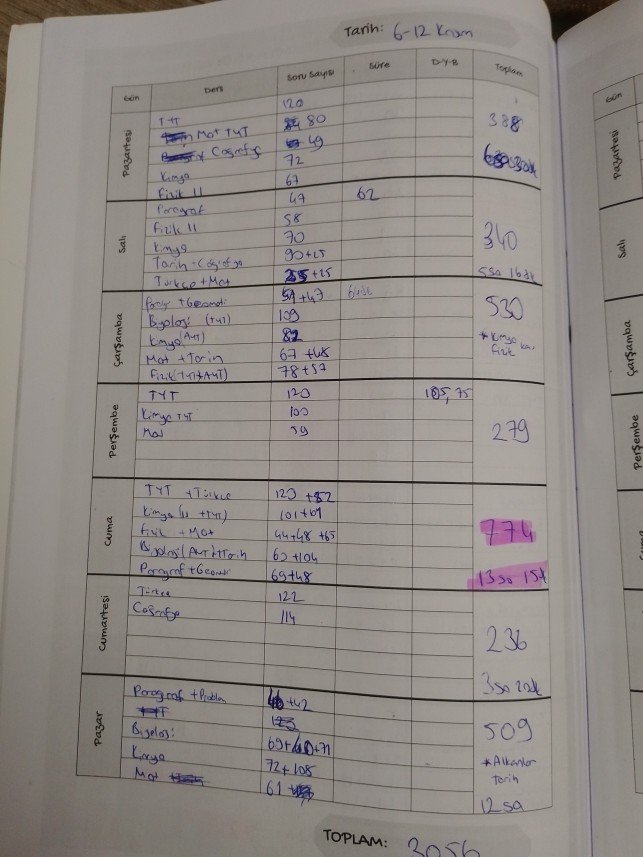 Tarih: 6-12 Kasım
Gün Ders Soru Sayısı Süre D-Y-B Toplam
Pazartesi
TYT 120
Mat TYT 80
Coğrafya 49
Kimya 72
Fizik 11 67
388
Salı
Paragraf 47 62
Fizik 11 58
Kimya 70
Tarih + Coğrafya 90+25
Türkçe + Mat +25
340
Çarşamba
+ Geometri 59+47
Biyoloji (TYT) 109
Kimya (AYT) 82
Mat + Tarih 67 +48
Fizik (TYT+AYT) 78+57
530
* Kimya
Fizik
Perşembe
TYT 120 105,75
Kimya TYT 100
Mat 59
279
Cuma
TYT + Türkçe 120 +82
Kimya (11 +TYT) 101+61
Fizik + Mat 44+48 +65
Biyoloji (AYT)+Tarih 62 +104
Paragraf + Geometri 69+48
774
13 sa 15 dk
Cumartesi
Türkçe 122
Coğrafya 114
236
3 sa 20 dk
Pazar
Paragraf + Problem +42
Biyoloji 69+ +71
Kimya 72+108
Mat 61
509
* Alkanlar
Tarih
12 sa
TOPLAM: 3056
Gün
Pazartesi
Salı
Çarşamba
Perşembe